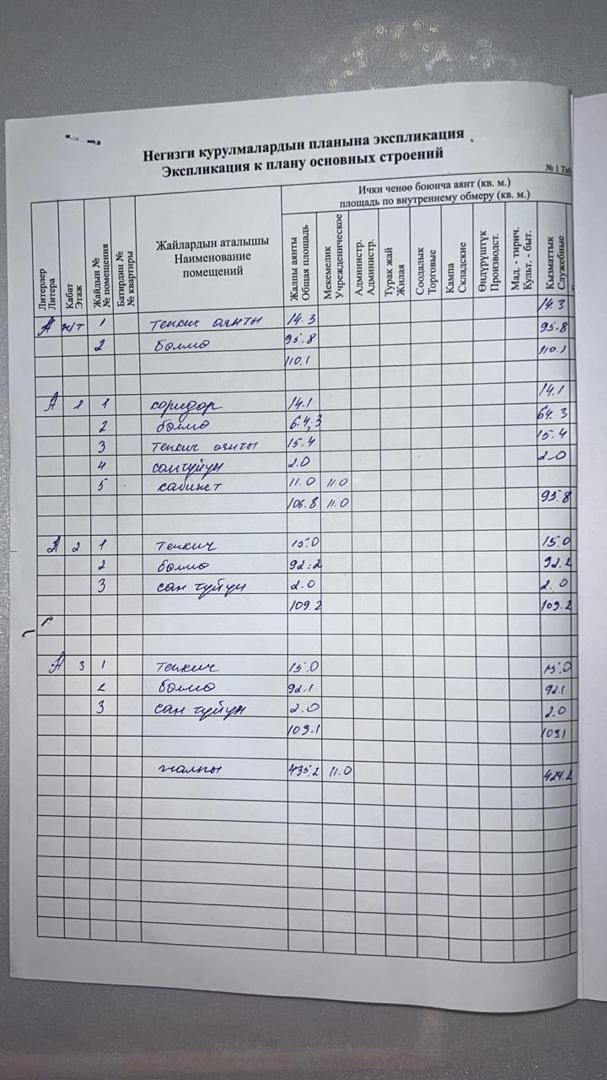 Негизги курулмалардын планына экспликация
Экспликация к плану основных строений
№ 1 Таб
Ички ченөө боюнча аянт (кв. м.)
площадь по внутреннему обмеру (кв. м.)
Литерлер Литера
Кабат Этаж
Жайдын № № помещения
Батирдин № № квартиры
Жайлардын аталышы Наименование помещений
Жалпы аянты Общая площадь
Мекемелик Учрежденическое
Администр. Администр.
Турак жай Жилая
Соодалык Торговые
Кампа Складские
Өндүрүштүк Производст.
Мад. - тирич. Культ. - быт.
Кызматтык Служебные
А ж/т 1 тепкич аянты 14.3 14.3
2 бөлмө 95.8 95.8
110.1 110.1
А 1 1 коридор 14.1 14.1
2 бөлмө 64.3 64.3
3 тепкич аянты 15.4 15.4
4 сантүйүн 2.0 2.0
5 кабинет 11.0 11.0
106.8 11.0 95.8
А 2 1 тепкич 15.0 15.0
2 бөлмө 92.2 92.2
3 сан түйүн 2.0 2.0
109.2 109.2
А 3 1 тепкич 15.0 15.0
2 бөлмө 92.1 92.1
3 сан түйүн 2.0 2.0
109.1 109.1
жалпы 435.2 11.0 424.2